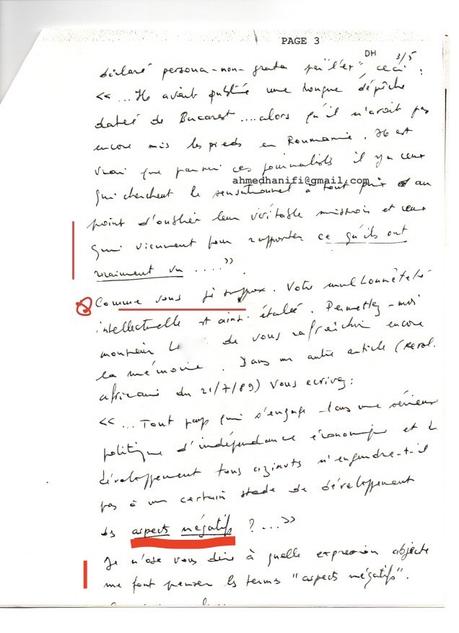 PAGE 3
DH 3/5
déclaré persona-non-grata par l'Est ceci :
<< ... Il avait publié une longue dépêche
datée de Bucarest .... alors qu'il n'avait pas
encore mis les pieds en Roumanie. Il est
vrai que parmi ces journalistes il y a ceux
ahmedhanifi@gmail.com
qui cherchent le sensationnel à tout prix au
point d'oublier leur véritable mission et ceux
qui viennent pour rapporter ce qu'ils ont
vraiment vu .... >>.
Comme vous je suppose. Votre malhonnêteté
intellectuelle est ainsi étalée. Permettez-moi
monsieur de vous rafraîchir encore
la mémoire. Dans un autre article (Révol.
africaine du 21/7/89) vous écrivez :
<< ... Tout pays qui s'engage dans une sérieuse
politique d'indépendance économique et de
développement tous azimuts n'engendre-t-il
pas à un certain stade de développement
des aspects négatifs ? ... >>
Je n'ose vous dire à quelle expression abjecte
me font penser les termes "aspects négatifs".